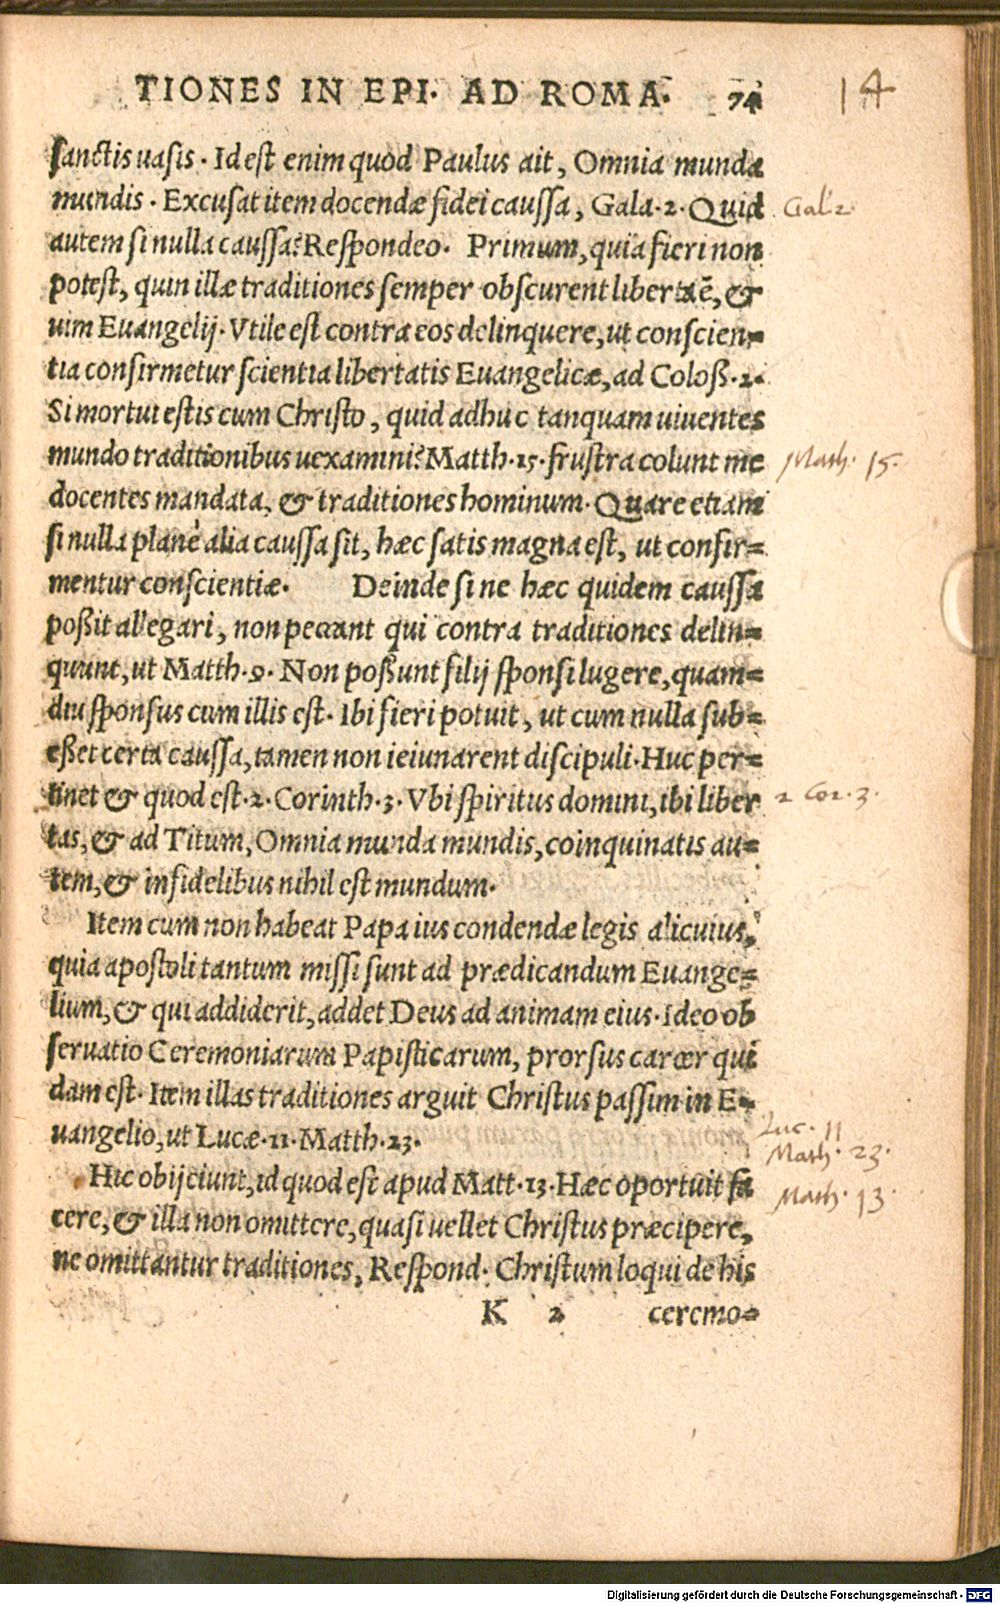 TIONES IN EPI. AD ROMA. 74
14
sanctis uasis. Id est enim quod Paulus ait, Omnia munda
mundis. Excusat item docendæ fidei caussa, Gala.2. Quid
Gal 2
autem si nulla caussa? Respondeo. Primum, quia fieri non
potest, quin illæ traditiones semper obscurent libertatē, &
uim Euangelij. Vtile est contra eos delinquere, ut conscien=
tia confirmetur scientia libertatis Euangelicæ, ad Coloß.2.
Si mortui estis cum Christo, quid adhuc tanquam uiuentes
mundo traditionibus uexamini? Matth.15. frustra colunt me
Math. 15.
docentes mandata, & traditiones hominum. Quare etiam
si nulla planè alia caussa sit, hæc satis magna est, ut confir=
mentur conscientiæ. Deinde si ne hæc quidem caussa
poßit allegari, non peccant qui contra traditiones delin=
quunt, ut Matth.9. Non possunt filij sponsi lugere, quam=
diu sponsus cum illis est. Ibi fieri potuit, ut cum nulla sub=
eßet certa caussa, tamen non ieiunarent discipuli. Huc per=
tinet & quod est.2. Corinth.3. Vbi spiritus domini, ibi liber
2 Cor. 3.
tas, & ad Titum, Omnia munda mundis, coinquinatis au=
tem, & infidelibus nihil est mundum.
Item cum non habeat Papa ius condendæ legis alicuius,
quia apostoli tantum missi sunt ad prædicandum Euange=
lium, & qui addiderit, addet Deus ad animam eius. Ideo ob
seruatio Ceremoniarum Papisticarum, prorsus carcer qui
dam est. Item illas traditiones arguit Christus passim in E=
uangelio, ut Lucæ.11. Matth.23.
Luc. 11
Math. 23.
Hic obijciunt, id quod est apud Matt.13. Hæc oportuit fa
Math. 13
cere, & illa non omittere, quasi uellet Christus præcipere,
ne omittantur traditiones, Respond. Christum loqui de his
K 2 ceremo=
Digitalisierung gefördert durch die Deutsche Forschungsgemeinschaft - DFG